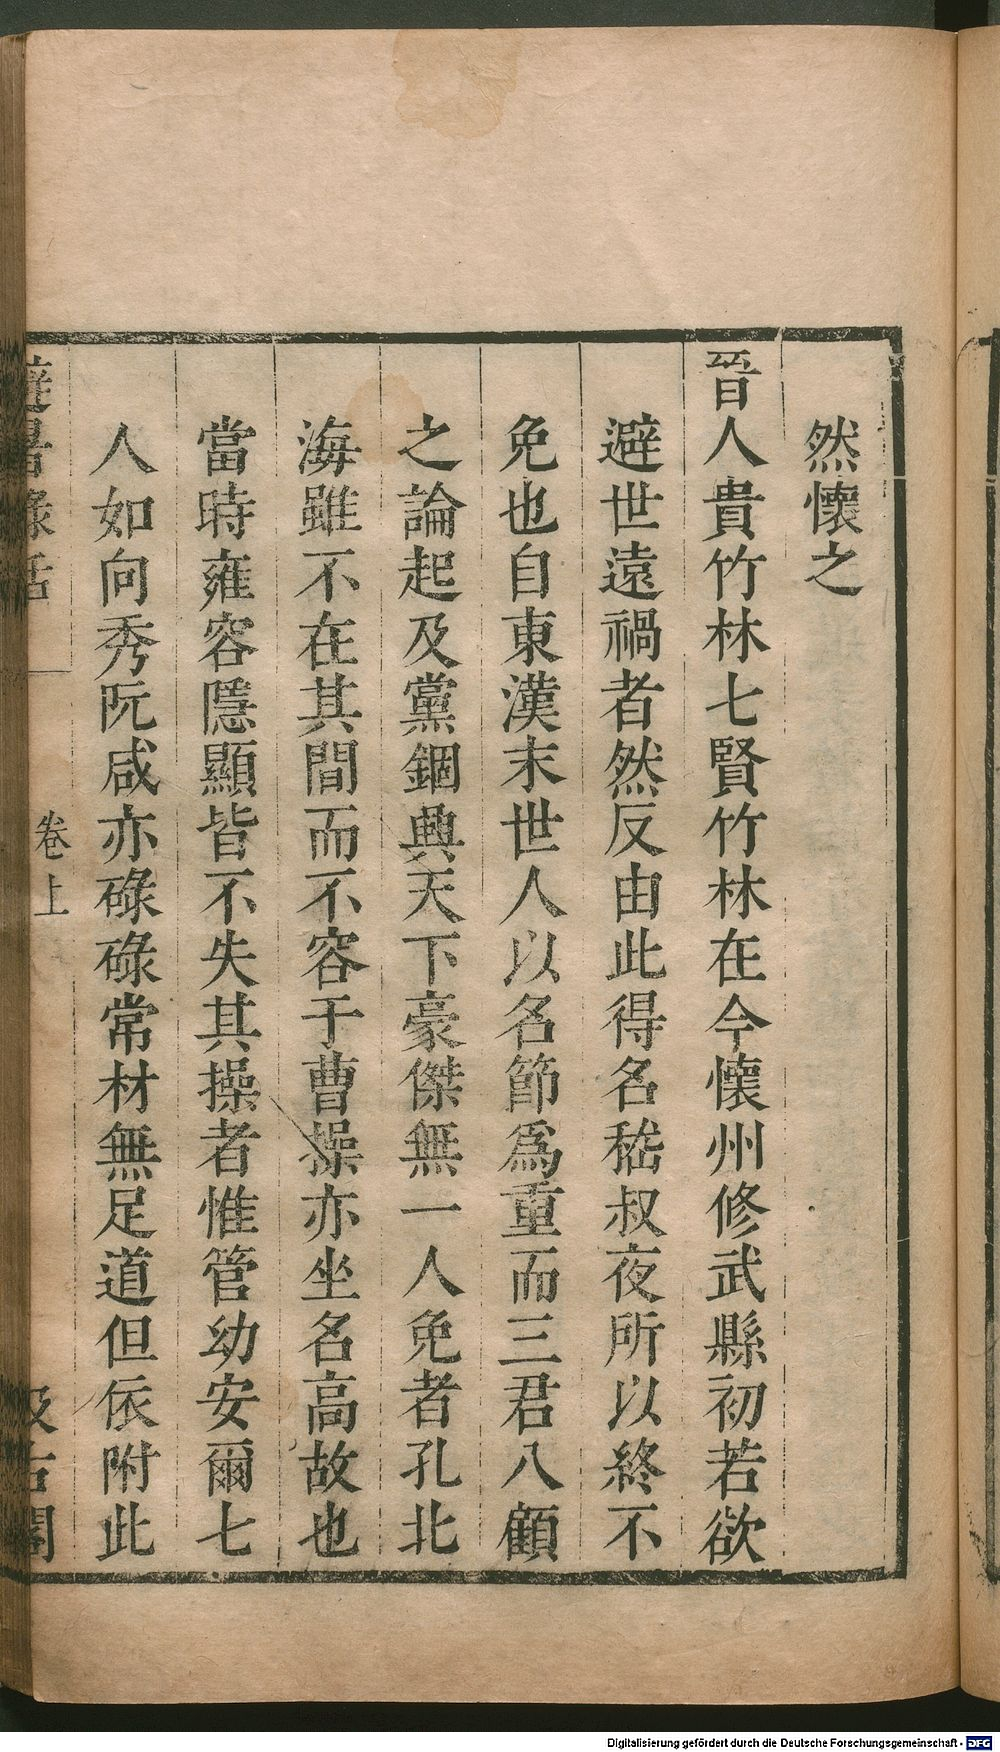 然懷之
晉人貴竹林七賢竹林在今懷州修武縣初若欲
避世遠禍者然反由此得名嵇叔夜所以終不
免也自東漢末世人以名節爲重而三君八顧
之論起及黨錮興天下豪傑無一人免者孔北
海雖不在其間而不容于曹操亦坐名高故也
當時雍容隱顯皆不失其操者惟管幼安爾七
人如向秀阮咸亦碌碌常材無足道但依附此
避暑錄話
卷上
汲古閣
Digitalisierung gefördert durch die Deutsche Forschungsgemeinschaft - DFG